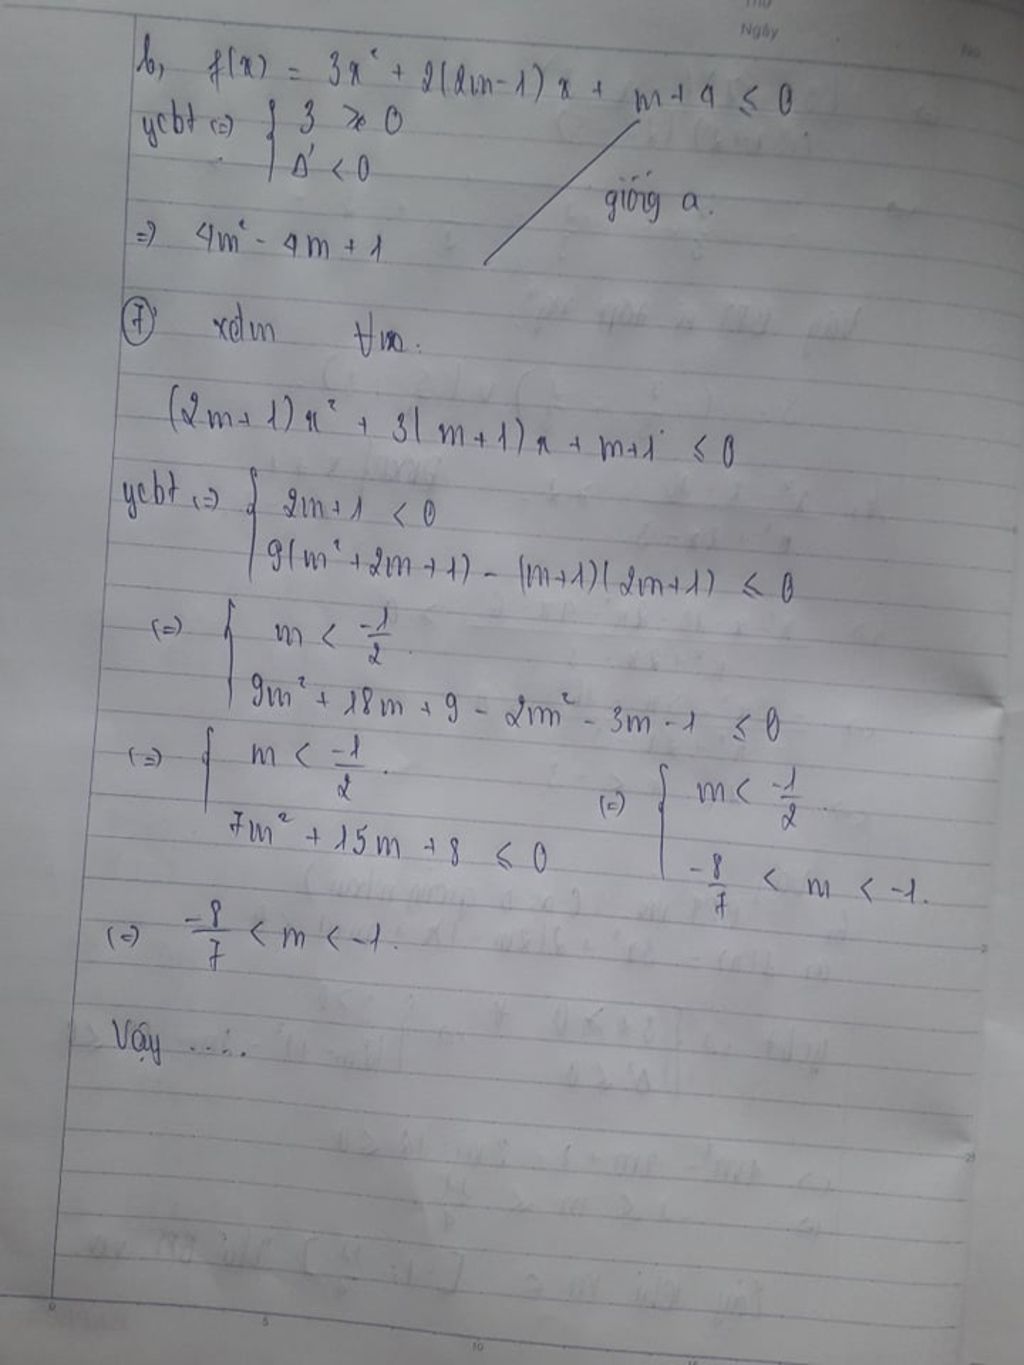 Ngày
b, f(x) = 3x² + 2(2m-1)x + m+4 ≤ 0
ycbt (=) { 3 > 0
Δ' < 0
giống a.
=) 4m² - 4m + 1
7
∀m.
(2m+1)x² + 3(m+1)x + m+1 ≤ 0
ycbt (=) { 2m+1 < 0
9(m²+2m+1) - (m+1)(2m+1) ≤ 0
(=) { m < -1/2.
9m² + 18m + 9 - 2m² - 3m - 1 ≤ 0
(=) { m < -1/2.
7m² + 15m + 8 ≤ 0
(=) { m < -1/2.
-8/7 < m < -1.
(=) -8/7 < m < -1.
Vậy ....
0 5 10